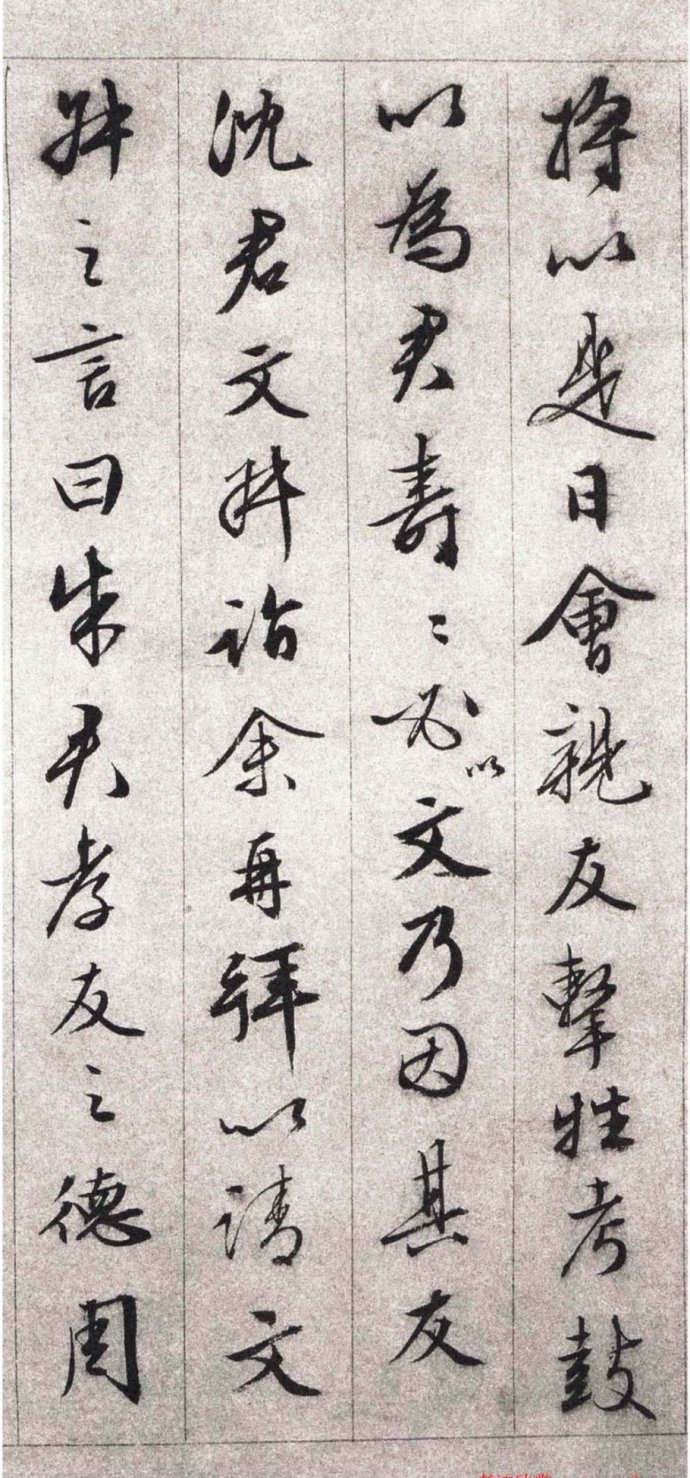 将以是日會親友擊牲考鼓
以為君壽〻必以文乃因其友
沈君文科詣余再拜以請文
科之言曰朱君孝友之德周